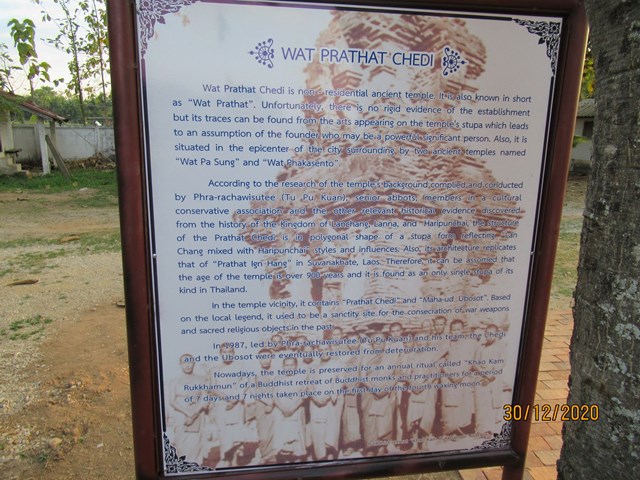 WAT PRATHAT CHEDI
Wat Prathat Chedi is non - residential ancient temple. It is also known in short
as "Wat Prathat". Unfortunately, there is no rigid evidence of the establishment
but its traces can be found from the arts appearing on the temple's stupa which leads
to an assumption of the founder who may be a powerful significant person. Also, it is
situated in the epicenter of the city surrounding by two ancient temples named
"Wat Pa Sung" and "Wat Phakasento".
According to the research of the temple's background complied and conducted
by Phra-rachawisutee (Tu Pu Kuan), senior abbots, members in a cultural
conservative association and the other relevant historical evidence discovered
from the history of the Kingdom of Lanchang, Lanna, and Haripunchai, the structure
of the Prathat Chedi is in polygonal shape of a stupa form reflecting Lan
Chang mixed with Haripunchai styles and influences. Also, its architecture replicates
that of "Prathat Ign Hang" in Suvanakhate, Laos. Therefore, it can be assumed that
the age of the temple is over 900 years and it is found as an only single stupa of its
kind in Thailand.
In the temple vicinity, it contains "Prathat Chedi" and "Maha-ud Ubosot". Based
on the local legend, it used to be a sanctity site for the consecration of war weapons
and sacred religious objects in the past.
In 1987, led by Phra-rachawisutee (Tu Pu Kuan) and his team, the Chedi
and the Ubosot were eventually restored from deterioration.
Nowadays, the temple is preserved for an annual ritual called "Khao Kam
Rukkhamun" of a Buddhist retreat of Buddhist monks and practitioners for a period
of 7 days and 7 nights taken place on the first day of the fourth waxing moon.
30/12/2020